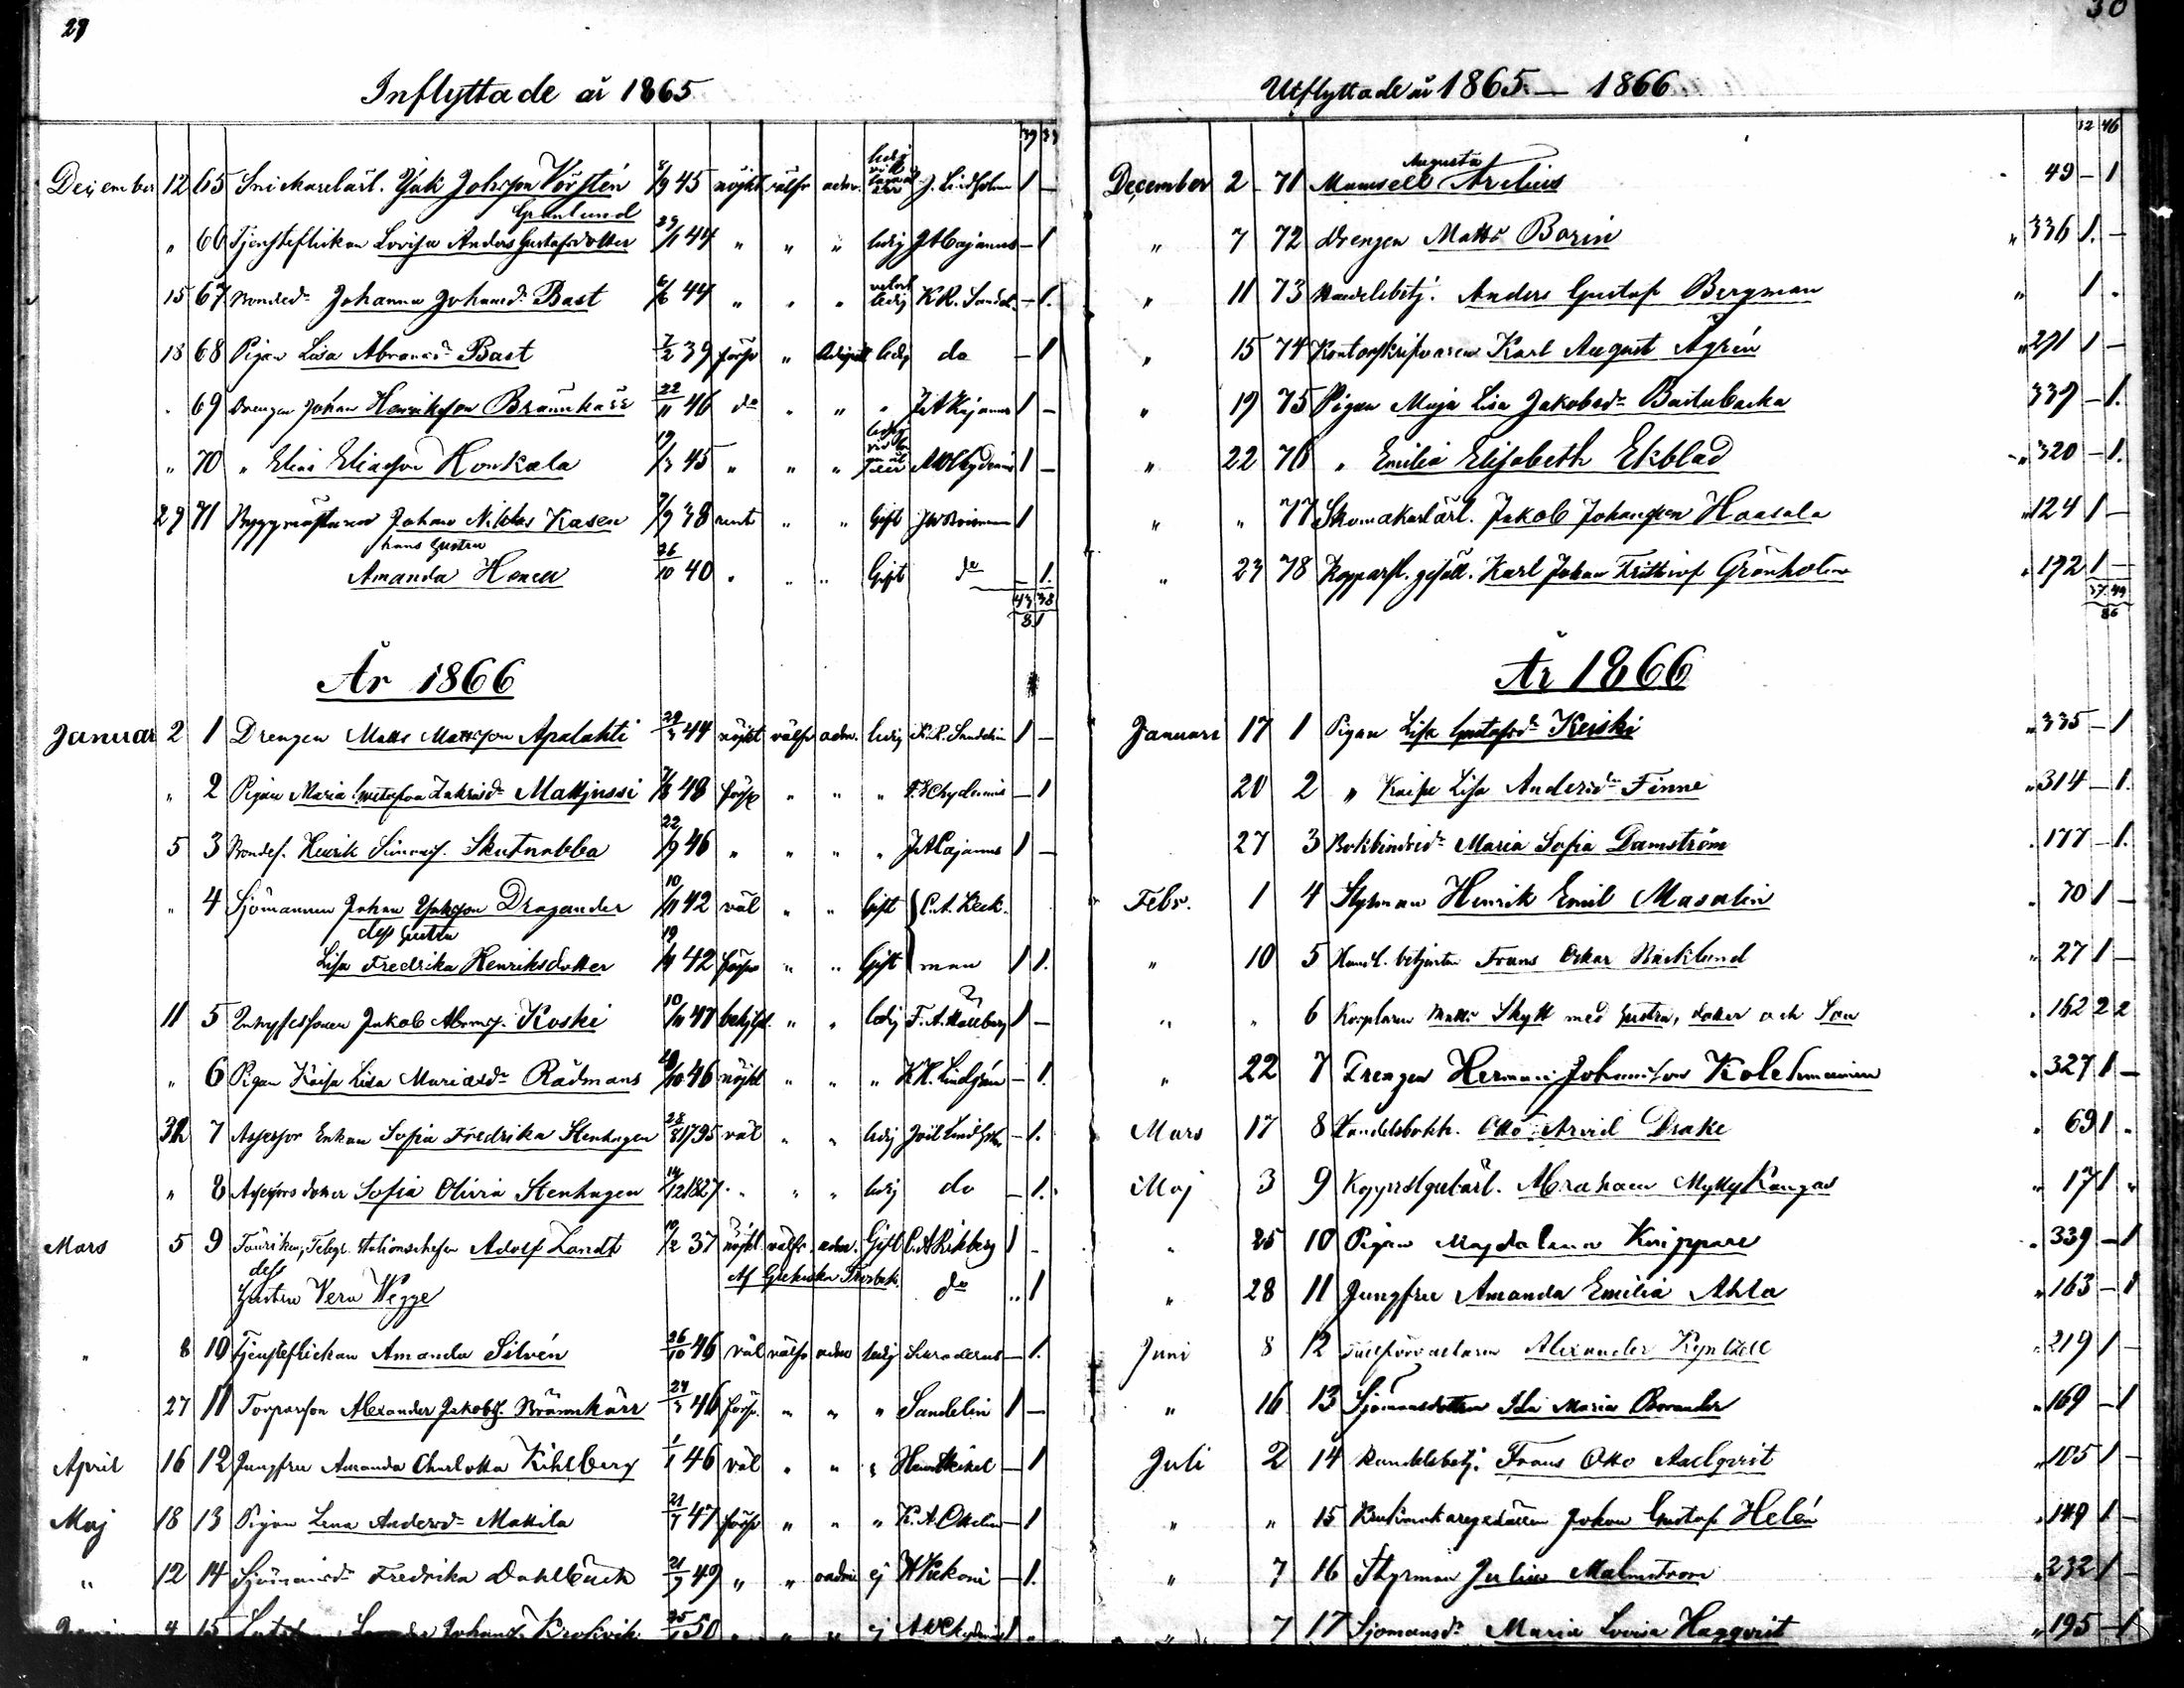 29
Inflyttade år 1865
39 37
December 12 65 Snickarelärl. Isak Johnsson Vörstén 8/9 45 nöjkt välfr adm. J. Lindholm 1 —
Granlund
" 66 Tjensteflickan Lovisa Anders Gustafsdotter 29/11 44 " " " ledig J A Cajanus — 1
15 67 Bonded:r Johanna Johansd:r Bast 6/6 44 " " " ledig K.R. Sandel. — 1.
18 68 Pigan Lisa Abramsd:r Bast 7/2 39 försv " ledig do — 1
" 69 Drengen Johan Henriksson Brännkärr 22/11 46 do " " " J A Kajanus 1 —
" 70 " Elias Eliasson Honkala 19/3 45 " " " A W Chydenius 1 —
29 71 Byggmästaren Johan Niklas Kasen 7/9 38 " " Gift 1
hans hustru
Amanda Honea 26/10 40 " " " Gift do — 1.
43 38
81
År 1866
Januar 2 1 Drengen Matts Mattsson Apalahti 29/3 44 nöjkt välfr adm. ledig K.R. Sandelin 1 —
" 2 Pigan Maria Gustafva Zakrisd:r Mattjussi 7/8 48 försv " " " F. Chydenius — 1
5 3 Bondes. Henrik Simons. Skutnabba 22/9 46 " " " " J A Cajanus 1 —
" 4 Sjömannen Johan Isaksson Dragander 10/11 42 väl " " Gift C. A. Keck-
dess hustru
Lisa Fredrika Henriksdotter 19/11 42 försv " " Gift man 1 1.
11 5 Inhysessonen Jakob Abrms. Koski 10/11 47 behjelpl. " " ledig F. A. Hällberg 1 —
" 6 Pigan Kaisa Lisa Mariasd:r Rådmans 46 nöjkt " " " K K. Lindgrén — 1.
31 7 Assessor Enkan Sofia Fredrika Stenhagen 28/8 1795 väl " " ledig Joel Lindholm — 1.
" 8 Assessors dotter Sofia Olivia Stenhagen 14/12 1827 " " " ledig do — 1.
Mars 5 9 Fänriken, Telegr. stationschefen Adolf Zandt 10/2 37 nöjkt välfr. adm. Gift C. A Rihberg 1 —
dess
hustru Vera Wegge Af Grekiska Trosbek. do " 1
" 8 10 Tjensteflickan Amanda Silvén 26/10 46 väl välfr adm ledig Snroderus — 1.
27 11 Torparson Alexander Jakobs. Brännkärr 24/3 46 försv. " " " Sandelin 1 —
April 16 12 Jungfru Amanda Charlotta Kihlberg 1/1 46 väl " " " — 1
Maj 18 13 Pigan Lena Andersd:r Mattila 21/1 47 försv " " " K. A. Ottelin — 1
" 12 14 Sjömansd:r Fredrika Dahlbäck 21/9 49 " " oadm ej — 1.
Juni 4 15 Johans. 25/1 50 " " " ej A W Chydenius 1 "
30
Utflyttade år 1865 — 1866
32 46
Augusta
December 2 71 Mamsell Arelius " 49 — 1
" 7 72 Drengen Matts Borin " 336 1. —
" 11 73 Handelsbetj. Anders Gustaf Bergman " 1 "
" 15 74 Kontorskrifvaren Karl August Ågrén " 291 1 —
" 19 75 Pigan Maja Lisa Jakobsd:r Baitubacka 339 — 1.
" 22 76 " Emilia Elisabeth Ekblad " 320 — 1.
" " 77 Skomakarlärl. Jakob Johansson Haasala " 124 1 —
" 23 78 Kopparsl. gesäll. Karl Johan Frithiof Grönholm " 192 1 —
37 49
86
År 1866
Januari 17 1 Pigan Lisa Gustafsd:r Keiski " 335 — 1
20 2 " Kaisa Lisa Andersd:r Finne " 314 — 1.
27 3 Bokbindred:r Maria Sofia Damström " 177 — 1.
Febr. 1 4 Styrman Henrik Emil Masalin " 70 1 —
" 10 5 Handl. betjenten Frans Oskar Bäcklund " 27 1 —
" " 6 Korpralen Matts Skytt med hustru, dotter och Son " 162 2 2
" 22 7 Drengen Herman Johansson Kolehmainen " 327 1 —
Mars 17 8 Handelsbokh. Otto Arvid Drake " 69 1 "
Maj 3 9 Kopparslgrelärl. Abraham Myllykangas " 17 1 "
" 25 10 Pigan Magdalena Knippare " 339 — 1
" 28 11 Jungfru Amanda Emilia Ahla " 163 — 1
Juni 8 12 Tullförvaltaren Alexander Kyntzell " 219 1 —
" 16 13 Sjömansdottern Ida Maria Borander " 169 — 1
Juli 2 14 Handelsbetj. Frans Otto Axelqvist " 105 1 —
" " 15 Johan Gustaf Helén " 149 1 —
" 7 16 Styrman Julius Malmström " 232 1 —
" 7 17 Sjömansd:r Maria Lovisa Haggqvist " 195 — 1